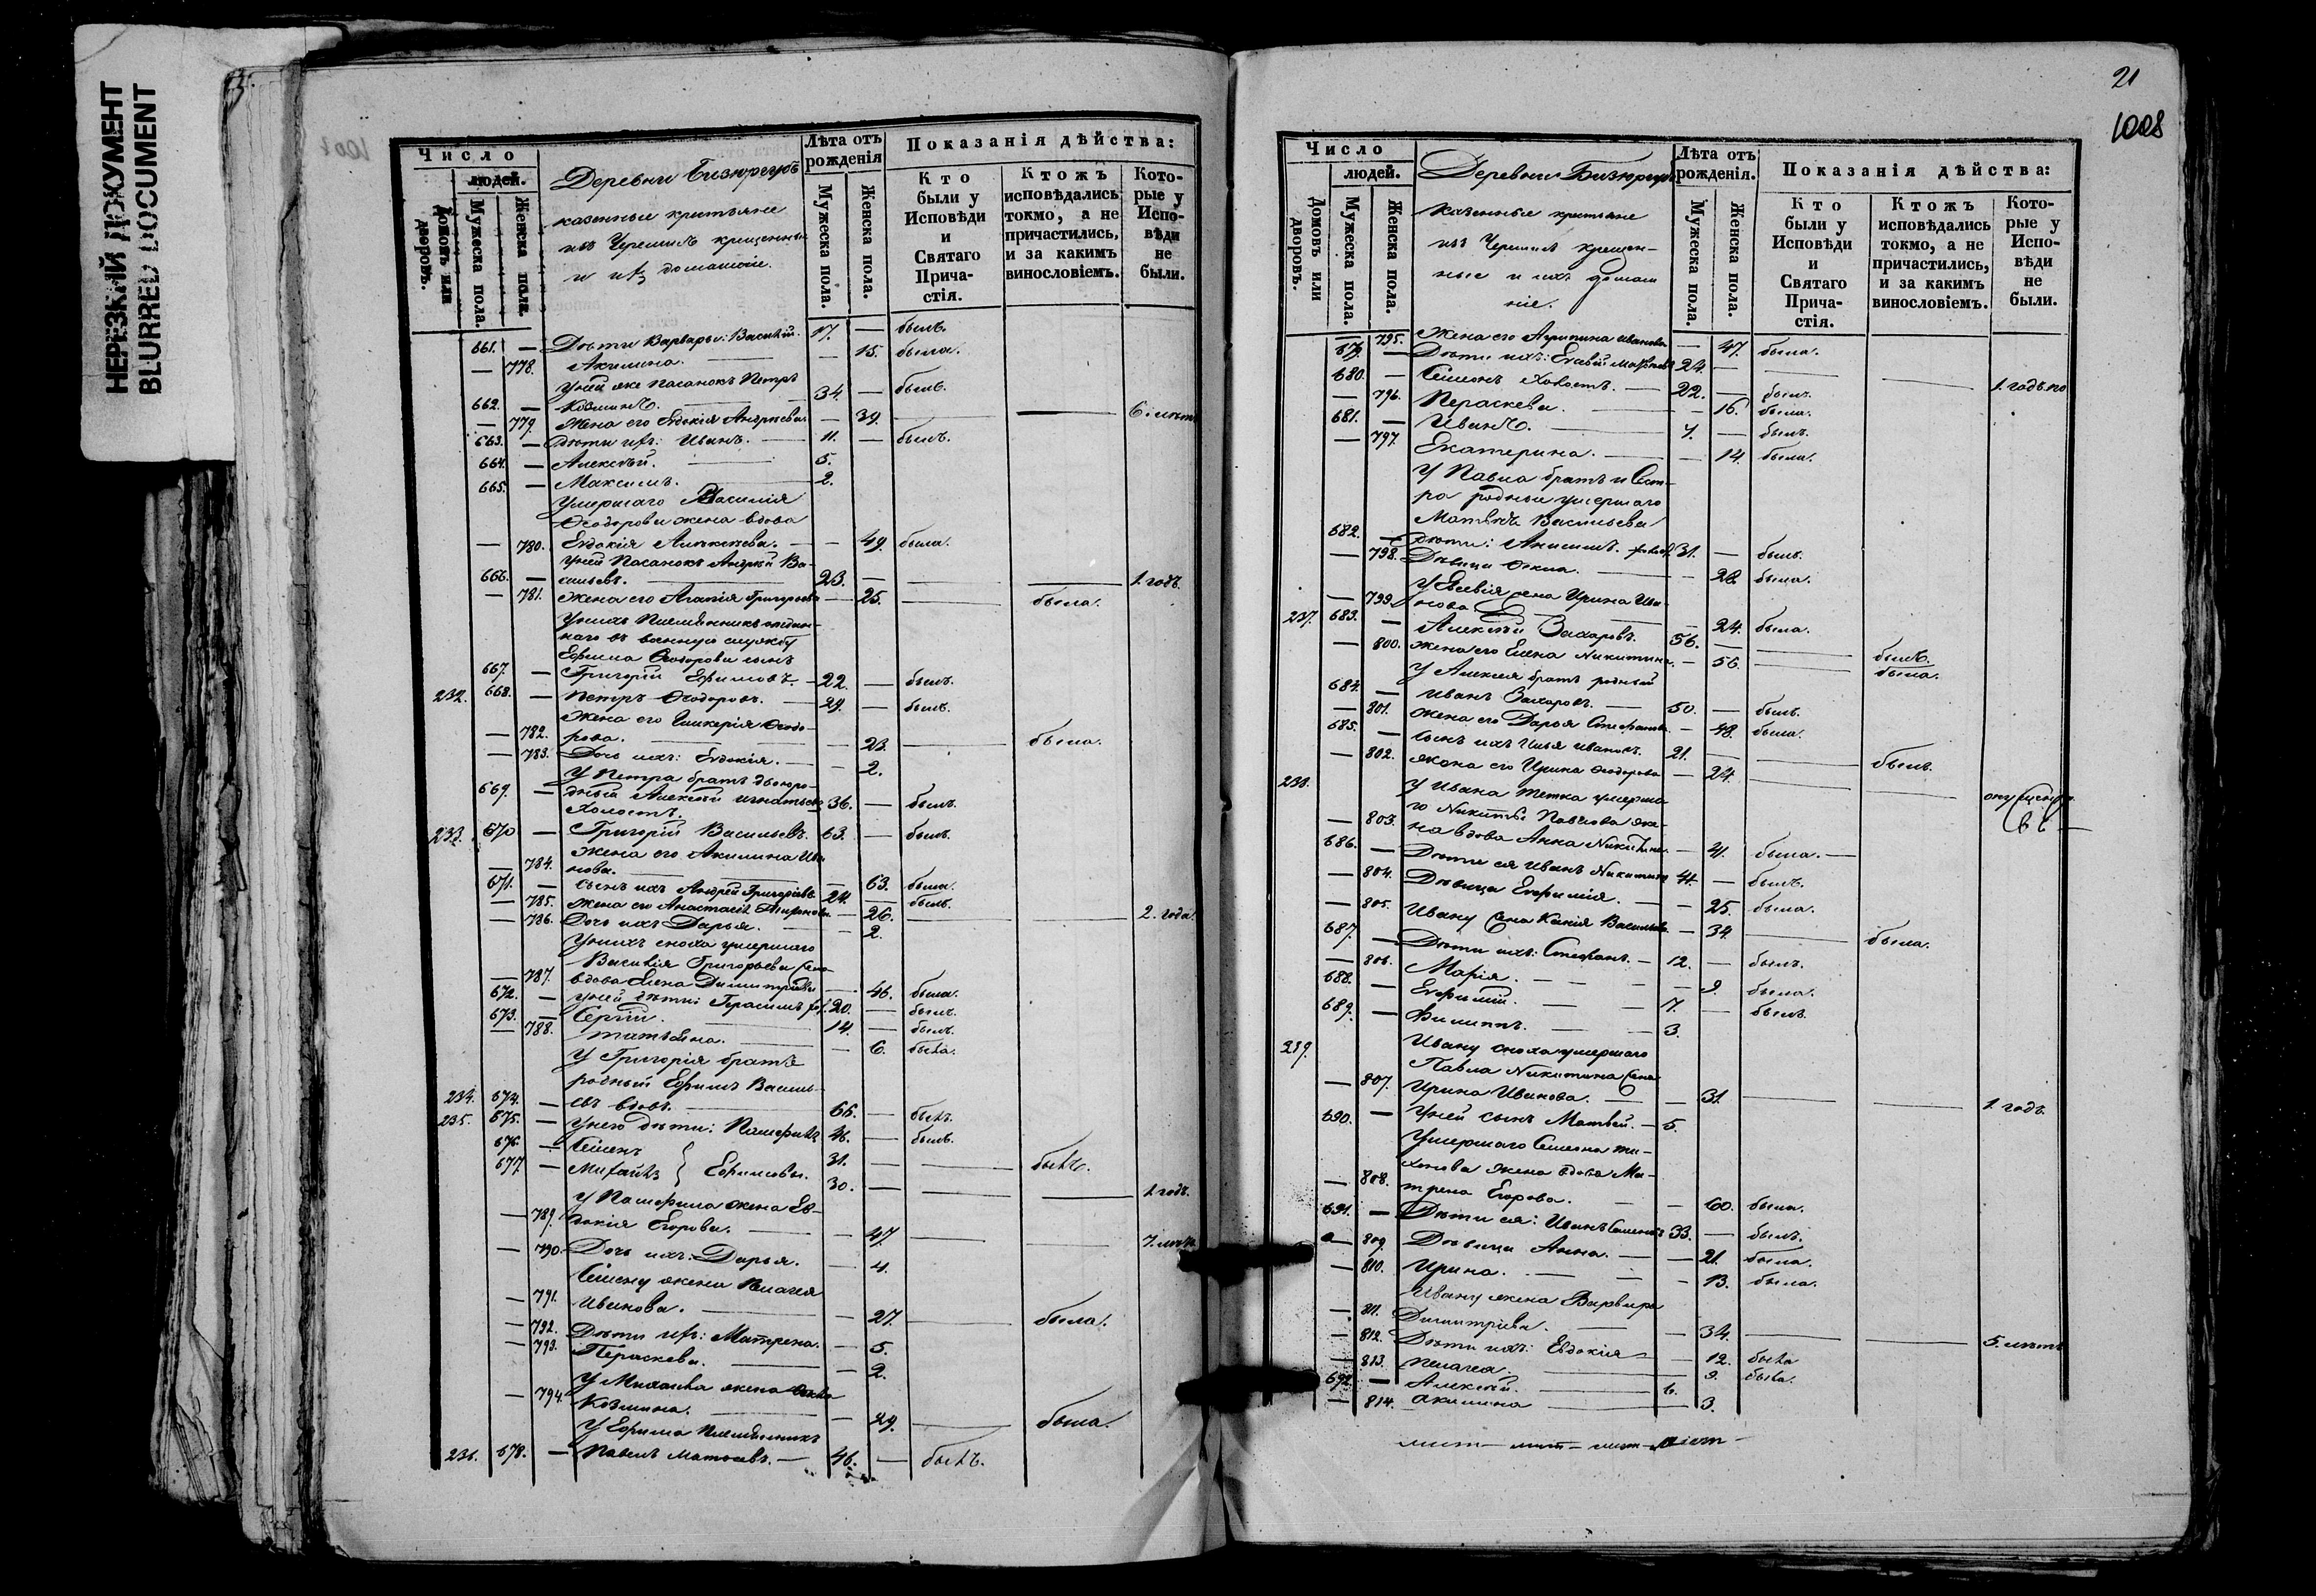 НЕРЕЗКИЙ ДОКУМЕНТ
BLURRED DOCUMENT
Число
людей.
Домовъ или дворовъ.
Мужеска пола.
Женска пола.
Деревни
казенные крестьяне
изъ Черемисъ крещенные
и ихъ домашніе.
Лѣта отъ рожденія
Мужеска пола.
Женска пола.
Показанія дѣйства:
Кто были у Исповѣди и Святаго Причастія.
Ктожъ исповѣдались токмо, а не причастились, и за какимъ винословіемъ.
Которые у Исповѣди не были.
661. — Дѣти Варвары: Василій. 17. — былъ.
— 778. Акилина. — — 15. была.
У ней же пасынокъ Петръ
662. — Козминъ. 34. — былъ.
— 779. Жена его Евдокія Андреева. — 39. — — 6. лѣтъ
663. — Дѣти ихъ: Иванъ. — 11. — былъ.
664. — Алексѣй. — 5.
665. — Максимъ. — 2.
Умершаго Василія
Ѳеодорова жена вдова
— 780. Евдокія Алексѣева. — 49. была.
У ней пасынокъ Андрей Ва-
666. — сильевъ. — 23. — — — 1. годъ.
— 781. Жена его Агапія Григорьева — 25. — была.
У нихъ племянникъ отдан-
наго въ военную службу
Ефима Ѳеодорова сынъ
667. — Григорій Ефимовъ. — 22. — былъ.
232. 668. — Петръ Ѳеодоровъ. — 29. — былъ.
Жена его Гликерія Ѳеодо-
— 782. рова. — — 23. — была.
— 783. Дочь ихъ: Евдокія. — — 2.
У Петра братъ двоюро-
669. — дный Алексѣй Игнатьевъ 36. — былъ.
Холостъ.
233. 670 — Григорій Васильевъ. 63. — былъ.
Жена его Акилина Ива-
— 784. нова. — — 63. была.
671. — Сынъ ихъ Андрей Григорьевъ. 24. — былъ.
— 785. Жена его Анастасія — 26. — — 2. года.
— 786. Дочь ихъ Дарья. — — 2.
У нихъ сноха умершаго
Василія Григорьева жена
— 787. вдова Елена Димитріева — 46. была.
672. — У ней дѣти: Герасимъ 20. — былъ.
673. — Сергій. — 14. — былъ.
— 788. Татьяна. — — 6. была.
У Григорія братъ
родный Ефимъ Василь-
234. 674. — евъ вдовъ. — 66. — былъ.
235. 675. — У него дѣти: Памфилъ 46. — былъ.
676. — Семенъ 31. — — былъ.
677. — Михаилъ } Ефимовы. 30. — — — 1. годъ.
У Памфила жена Ев-
— 789. докія Егорова. — — 47. — — 7. лѣтъ
— 790. Дочь ихъ: Дарья. — 4.
Семену жена Пелагея
— 791. Иванова. — — 27. — была.
— 792. Дѣти ихъ: Матрена. — 5.
— 793. Пераскева. — — 2.
У Михаила жена
— 794. Козмина. — — 29. — была.
У Ефима племянникъ
236. 678. — Павелъ Матвѣевъ. — 46. — былъ.
21
1008
Число
людей.
Домовъ или дворовъ.
Мужеска пола.
Женска пола.
Деревни
казенные крестьяне
изъ Черемисъ крещен-
ные и ихъ домаш
ніе.
Лѣта отъ рожденія.
Мужеска пола.
Женска пола.
Показанія дѣйства:
Кто были у Исповѣди и Святаго Причастія.
Ктожъ исповѣдались токмо, а не причастились, и за какимъ винословіемъ.
Которые у Исповѣди не были.
— 795. Жена его Агрипина Иванова — 47. была.
679. — Дѣти ихъ: 24. — — — 1. годъ
680. — Семенъ Холостъ. — 22. — былъ.
— 796. Пераскева. — — 16. была.
681. — Иванъ. — 7. — былъ.
— 797. Екатерина. — — 14. была.
У Павла братъ и Сест-
ра родные умершаго
Матвѣя Васильева
682. — дѣти: Анисимъ. 31. — былъ.
— 798. Дѣвица Ѳекла. — — 28. была.
У Евсевія жена Ирина Ива-
— 799. нова — — 24. была.
237. 683. — Алексѣй Захаровъ. 56. — — былъ.
— 800. Жена его Елена Никитина. — 56. — была.
У Алексѣя братъ родный
684. — Иванъ Захаровъ. — 50. — былъ.
— 801. Жена его Дарья Стефанова — 48. была.
685. — Сынъ ихъ Илья Ивановъ. 21. — — былъ.
— 802. Жена его Ирина Ѳеодорова — 24. — —
238. У Ивана тетка умерша
го Никиты Павлова же-
— 803. на вдова Анна Никитина. — была. —
686. — Дѣти ея Иванъ Никитинъ 44. — былъ.
— 804. Дѣвица Евфимія. — — 25. была.
— 805. Ивану жена Ксенія Васильева. — 34. — была.
687. — Дѣти ихъ: Стефанъ. — 12. — былъ.
— 806. Марія. — — 9. была.
688. — Евфимій. — 7. — былъ.
689. — Филиппъ. — — 3.
239. Ивану сноха умершаго
Павла Никитина жена
— 807. Ирина Иванова. — — 31. — — 1. годъ.
690. — У ней сынъ Матвей. — 5.
Умершаго Семена Ти-
хонова жена вдова Ма-
— 808. трена Егорова. — — 60. была.
691. — Дѣти ея: Иванъ Семеновъ 33. — былъ.
— 809. Дѣвица Анна. — — 21. была.
— 810. Ирина. — — 13. была.
Ивану жена Варвара
— 811. Димитріева. — — 34. — — 5. лѣтъ
— 812. Дѣти ихъ: Евдокія — — 12. была
— 813. Пелагея. — 9. была.
692. — Алексѣй. — 6.
— 814. Акилина — 3.